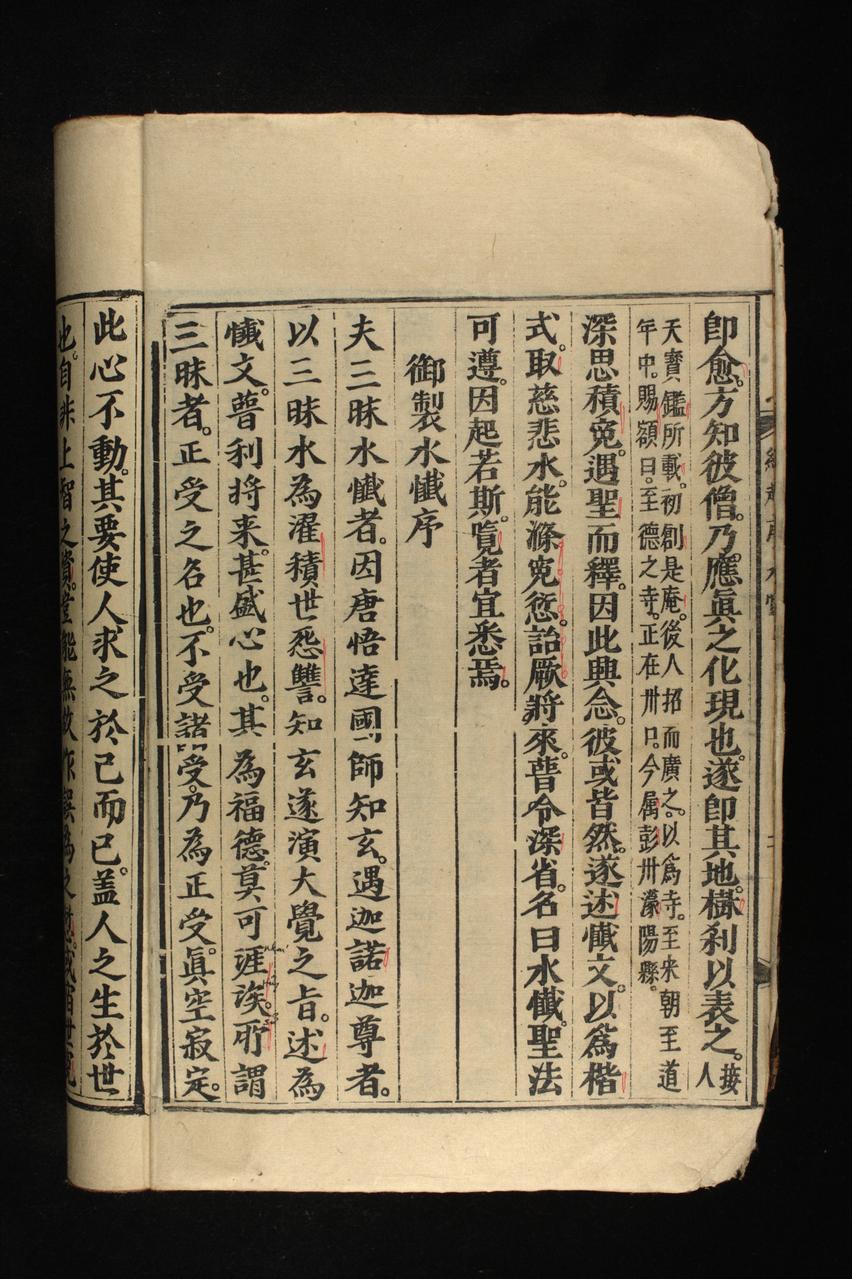 即愈。方知彼僧。乃應眞之化現也。遂即其地。樹刹以表之。接人
天寶鑑所載。初創是庵。後人招而廣之。以爲寺。至宋朝至道
年中。賜額曰。至德之寺。正在州口。今属彭州濛陽縣。
深思積寃。遇聖而釋。因此興念。彼或皆然。遂述懺文。以爲楷
式。取慈悲水。能滌寃愆。詒厥將來。普令深省。名曰水懺。聖法
可遵。因起若斯。覽者宜悉焉。
御製水懺序
夫三昧水懺者。因唐悟達國師知玄。遇迦諾迦尊者。
以三昧水為濯積世怨讐。知玄遂演大覺之旨。述為
懺文。普利将来。甚盛心也。其為福德。莫可涯涘。所謂
三昧者。正受之名也。不受諸受。乃為正受。眞空寂定。
此心不動。其要使人求之於己而已。盖人之生於世
也。自非上智之資。豈能無故作誤為之愆。或宿世寃